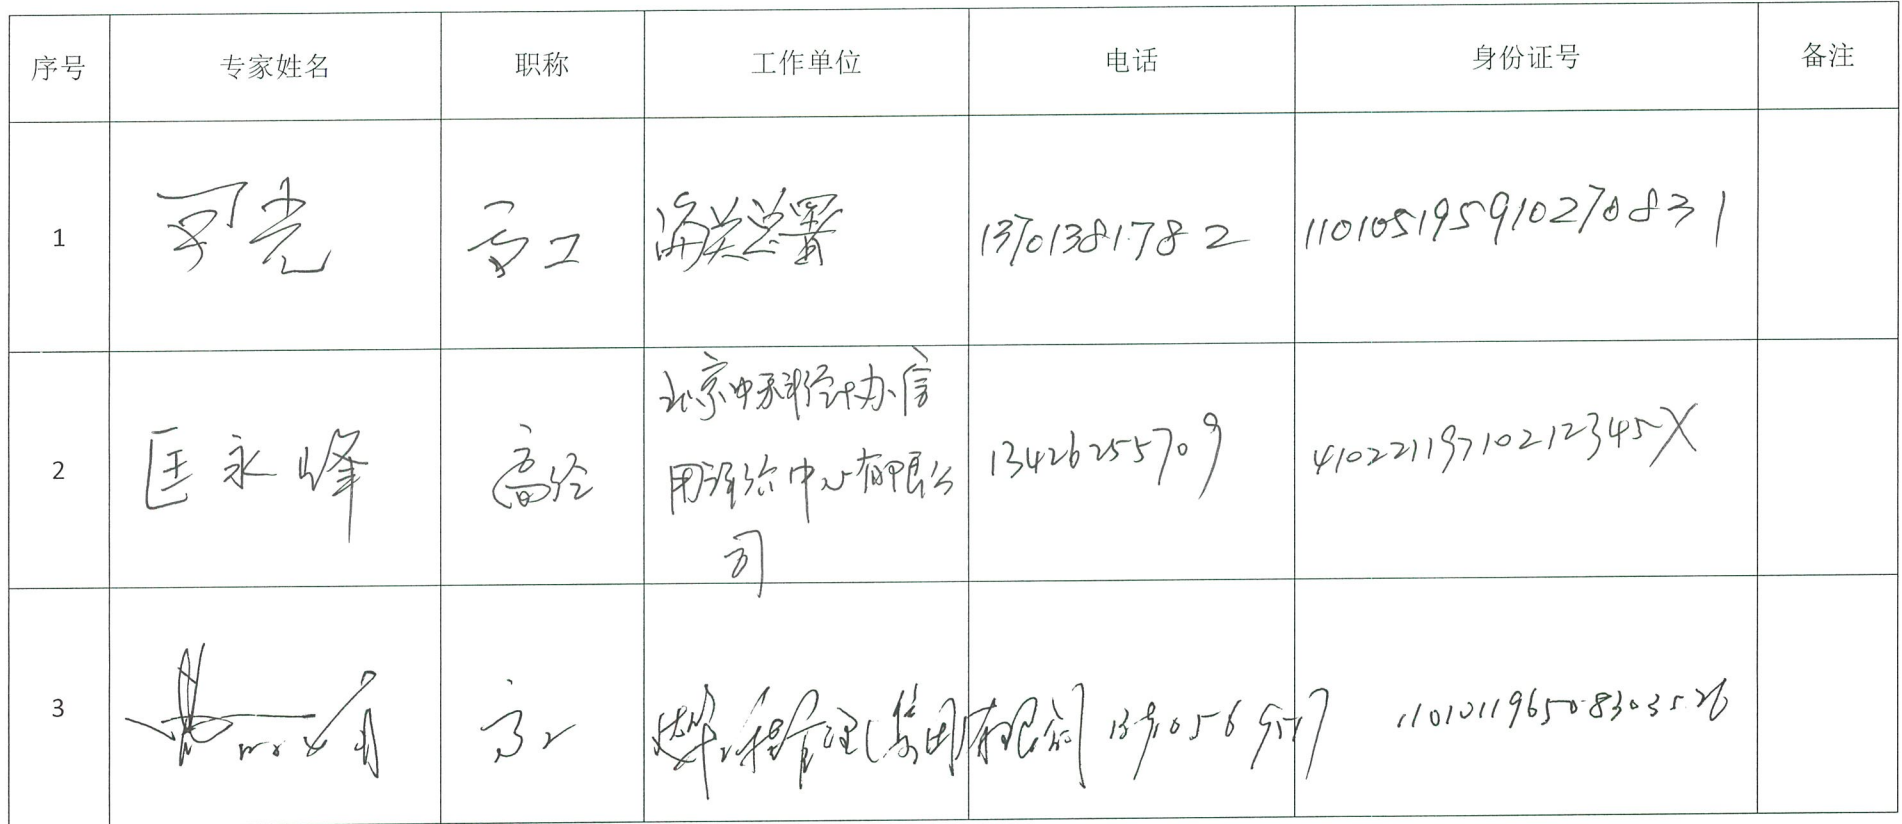 序号 专家姓名 职称 工作单位 电话 身份证号 备注
1 高工 海关总署 13701381782 110105195910270831
2 匡永峰 高经 北京中 办信
用评价中心有限公
司 13426255709 41022119710212345X
3 高工 工程管理(集团)有限公司 110101196508303526